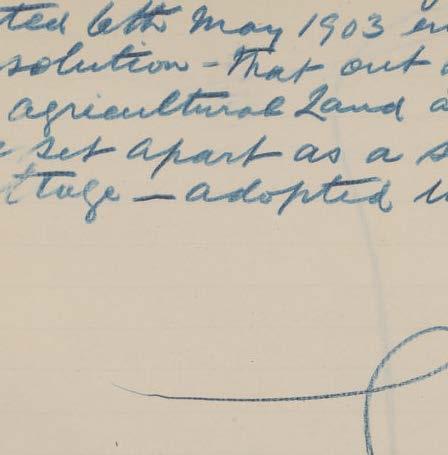 ted 6th May 1903 en
solution - That out
agricultural Land a
set apart as a s
ttage - adopted u